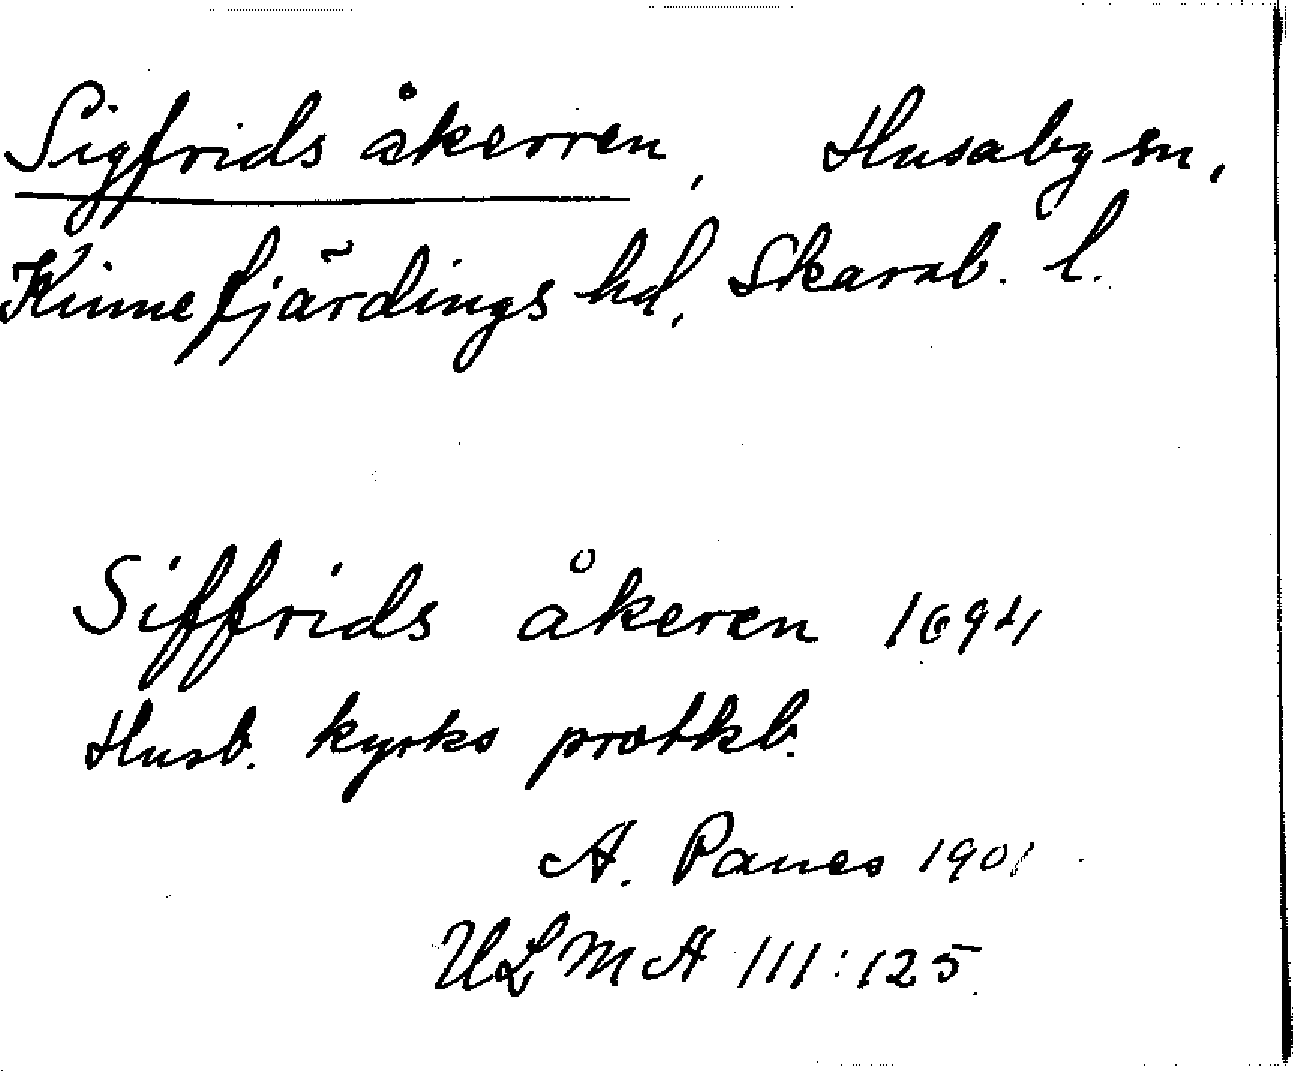 Sigfrids åkerren, Husaby sn,
Kinnefjärdings hd, Skarab. l.
Siffrids åkeren 1694
Husb. kyrks protkb.
A. Panes 1901
ULMA 111:125.